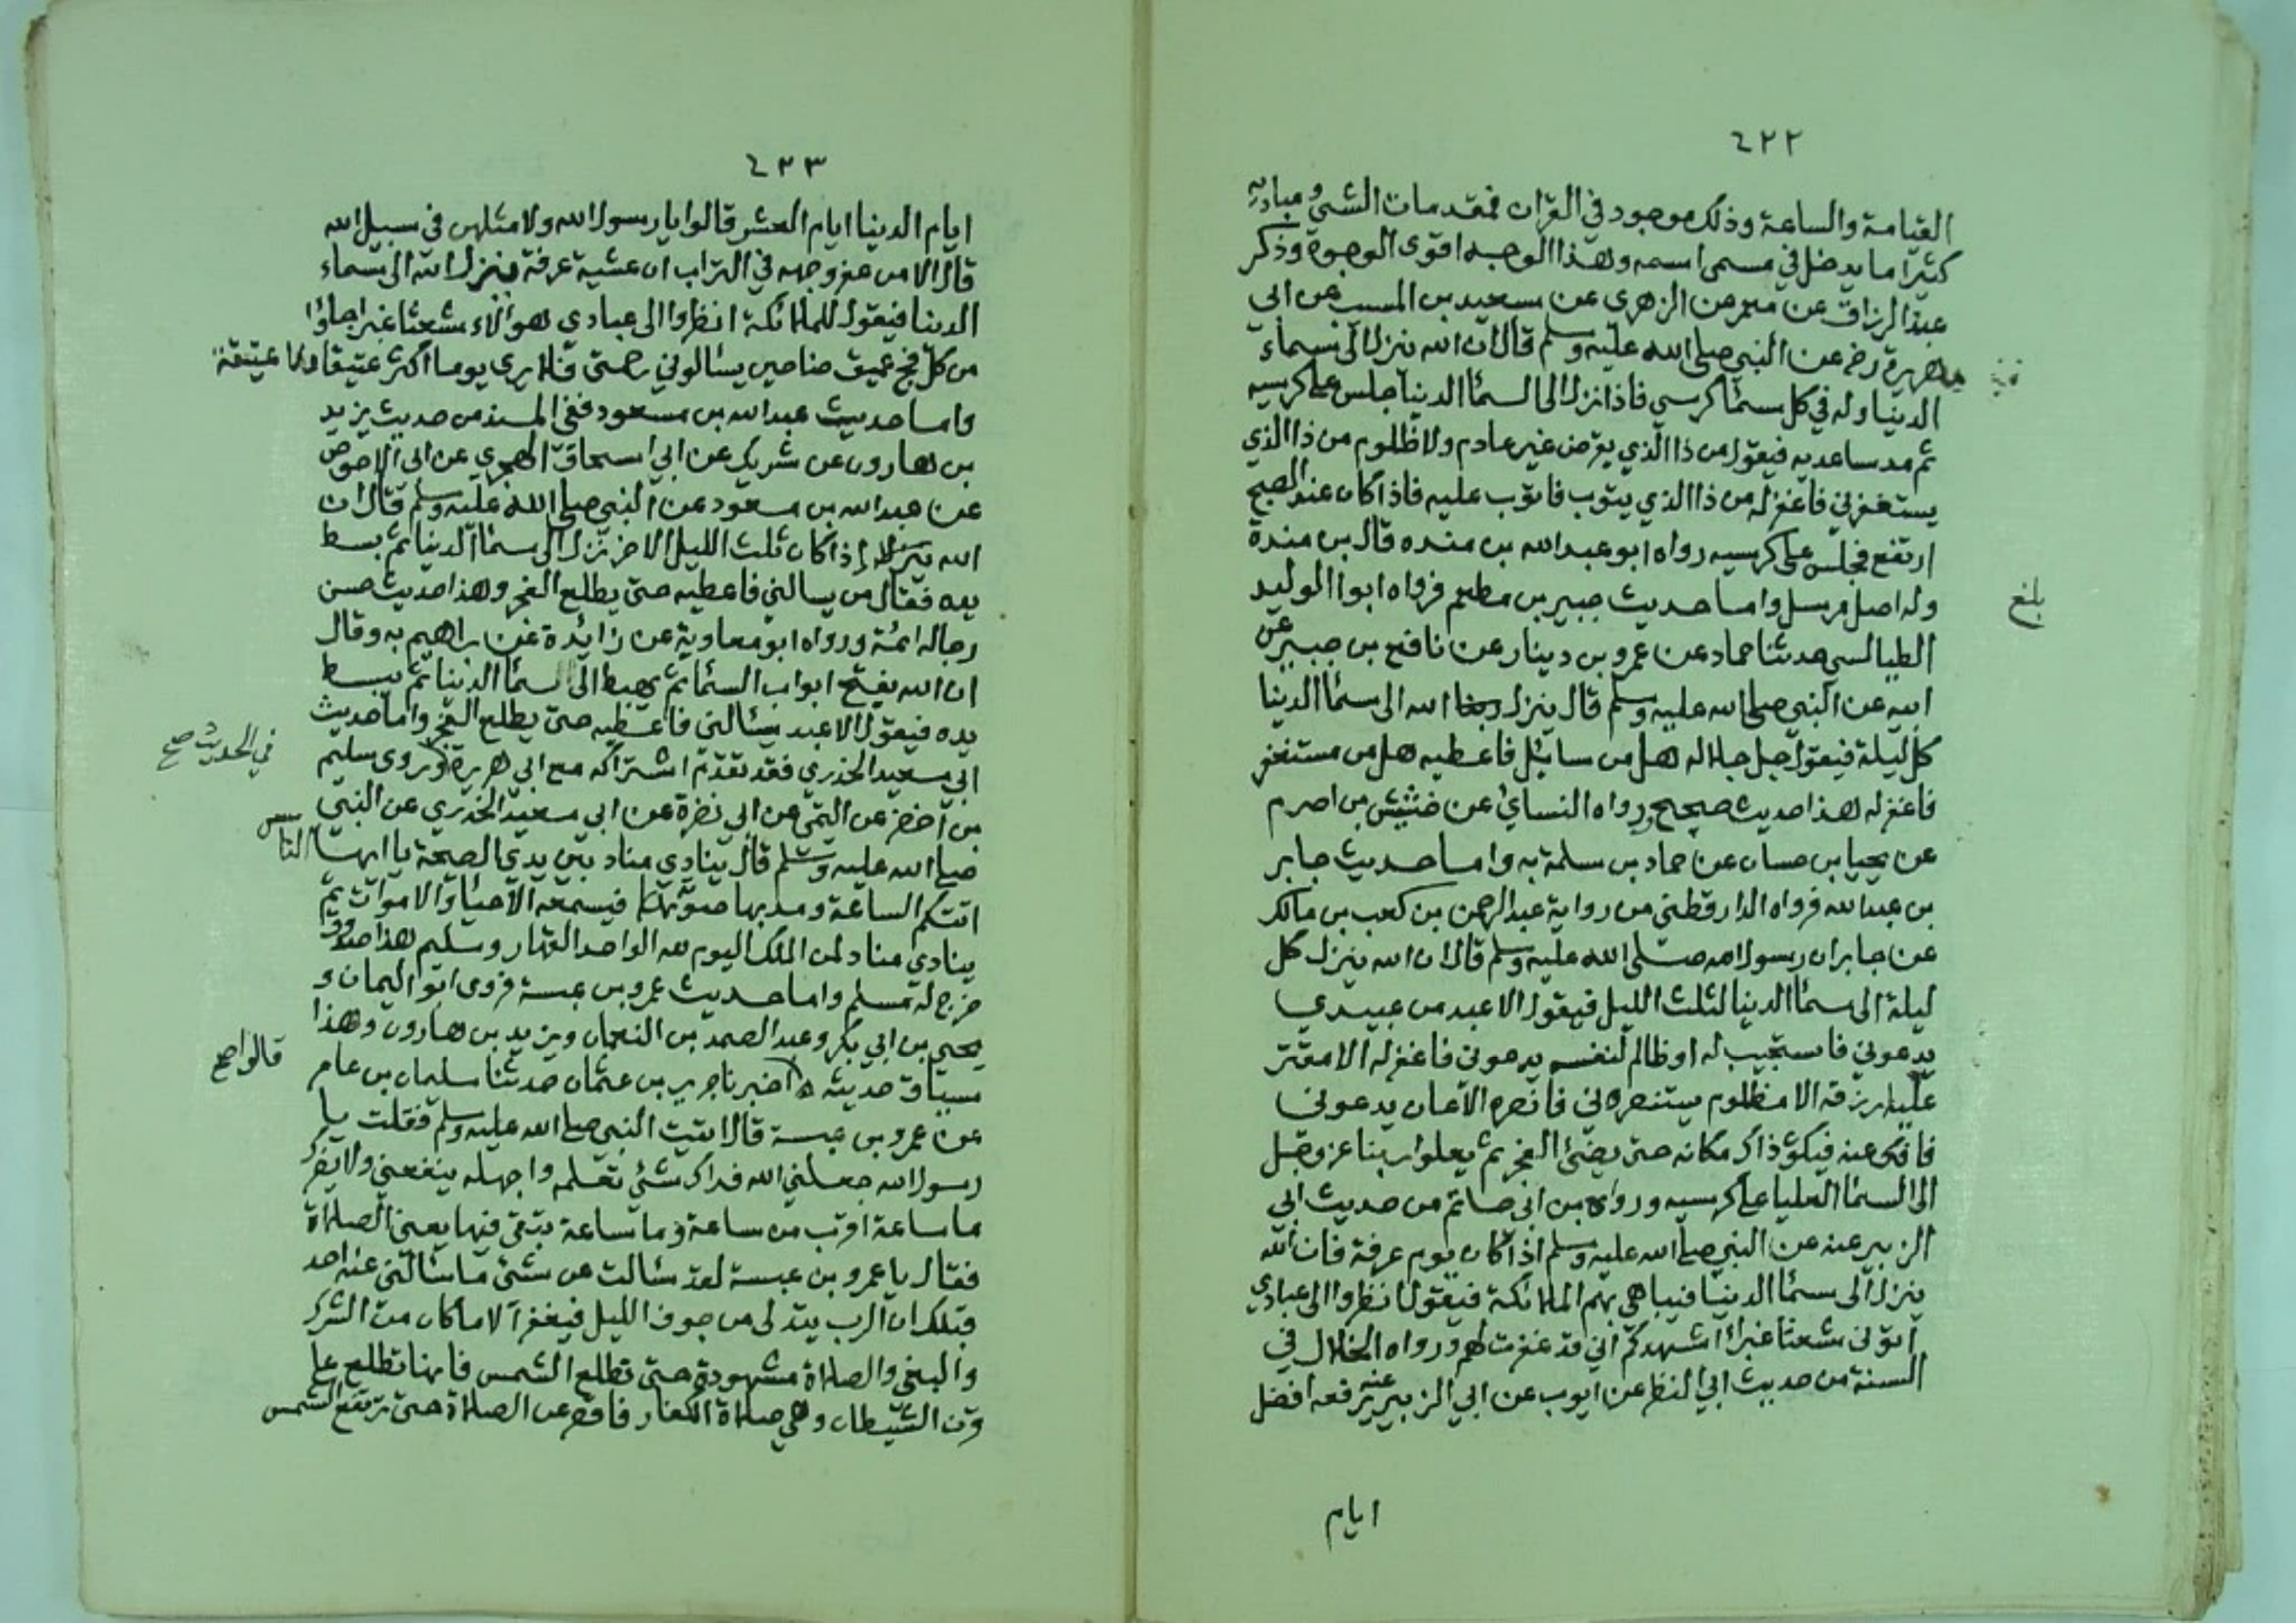 ٤٢٢
القيامة والساعة وذلك موجود في القران فمقدمات الشئ ومباديه
كثيرا ما يدخل في مسمى اسمه وهذا الوجه اقوى الوجوه وذكر
عبد الرزاق عن معمر عن الزهري عن سعيد بن المسيب عن ابي
هريرة رض عن النبي صلى الله عليه وسلم قال ان الله ينزل الى سماء
الدينا وله في كل سما كرسي فاذا نزل الى السما الدينا جلس على كرسيه
ثم مد ساعديه فيقول من ذا الذي يقرض غير عادم ولا ظلوم من ذا الذي
يستغفرني فاغفر له من ذا الذي يتوب فاتوب عليه فاذا كان عند الصبح
ارتفع فجلس على كرسيه رواه ابو عبد الله بن منده قال بن مندة
وله اصل مرسل واما حديث جبير بن مطعم فرواه ابوا الوليد
بلغ
الطيالسي حدثنا حماد عن عمرو بن دينار عن نافع بن جبير عن
ابيه عن النبي صلى الله عليه وسلم قال ينزل ربنا الله الى سما الدينا
كل ليلة فيقول جل جلاله هل من سايل فاعطيه هل من مستغفر
فاغفر له هذا حديث صحيح رواه النسائي عن خشيش بن اصرم
عن يحيا بن حسان عن حماد بن سلمة به واما حديث جابر
بن عبد الله فرواه الدارقطني من رواية عبد الرحمن بن كعب بن مالك
عن جابر ان رسول الله صلى الله عليه وسلم قال ان الله ينزل كل
ليلة الى سما الدينا لثلث الليل فيقول الا عبد من عبيدي
يدعوني فاستجيب له او ظالم لنفسه يدعوني فاغفر له الا مقتر
عليه رزقه الا مظلوم يستنصرني فانصره الا عان يدعوني
فافك عنه فيكون ذاك مكانه حتى يضئ الفجر ثم يعلوا ربنا عز وجل
الى السما العليا على كرسيه ورواه بن ابي حاتم من حديث ابي
الزبير عنه عن النبي صلى الله عليه وسلم اذا كان يوم عرفة فان الله
ينزل الى سما الدينا فيباهي بهم الملائكة فيقول انظروا الى عبادي
اتوني شعثا غبرا اشهدكم اني قد غفرت لهم ورواه الخلال في
السنة من حديث ابي النظر عن ايوب عن ابي الزبير عنه يرفعه افضل
ايام
٤٣٣
ايام الدينا ايام العشر قالوا يا رسول الله ولا مثلهن في سبيل الله
قال الا من عفر وجهه في التراب ان عشية عرفة ينزل الله الى سماء
الدينا فيقول للملائكة انظروا الى عبادي هوألاء شعثا غبرا جاؤا
من كل فج عميق ضاحين يسالوني رحمتي فلا يرى يوما اكثر عتيقا ولا عتيقة
واما حديث عبد الله بن مسعود ففي المسند من حديث يزيد
بن هارون عن شريك عن ابي اسحاق الهجري عن ابي الاحوص
عن عبد الله بن مسعود عن النبي صلى الله عليه وسلم قال ان
الله ينزل اذا كان ثلث الليل الاخر نزل الى سما الدينا ثم بسط
يده فقال من يسالني فاعطيه حتى يطلع الفجر وهذا حديث حسن
رجاله ائمة ورواه ابو معاوية عن زائدة عن ابراهيم به وقال
ان الله يفتح ابواب السما ثم يهبط الى سما الدينا ثم يبسط
يده فيقول الا عبد يسالني فاعطيه حتى يطلع الفجر واما حديث
ابي سعيد الخدري فقد تقدم اشتراكه مع ابي هريرة وروى سليم
في الحديث صح
بن اخضر عن التيمي عن ابي نضرة عن ابي سعيد الخدري عن النبي
صلى الله عليه وسلم قال ينادي مناد بين يدي الصيحة يا ايها الناس
اتتكم الساعة ومد بها صوته فيسمعه الاحيا والاموات ثم
ينادي مناد لمن الملك اليوم لله الواحد القهار وسليم هذا صدوق
خرج له مسلم واما حديث عمرو بن عبسة فروى ابو اليمان و
يحيى بن ابي بكر وعبد الصمد بن النعمان ويزيد بن هارون وهذا
سياق حديثه اخبرنا جرير بن عثمان حدثنا سليمان بن عامر
قالوا صح
عن عمرو بن عبسة قال اتيت النبي صلى الله عليه وسلم فقلت يا
رسول الله جعلني الله فداك شئ تعلمه واجهله ينفعني ولا يضرك
ما ساعة اقرب من ساعة وما ساعة يتقى فيها يعني الصلاة
فقال يا عمرو بن عبسة لقد سالت عن شئ ما سالني عنه احد
قبلك ان الرب يتدلى من جوف الليل فيغفر الا ما كان من الشرك
والبغي والصلاة مشهودة حتى تطلع الشمس فانها تطلع على
قرن الشيطان وهي صلاة الكفار فاقصر عن الصلاة حتى ترتفع الشمس